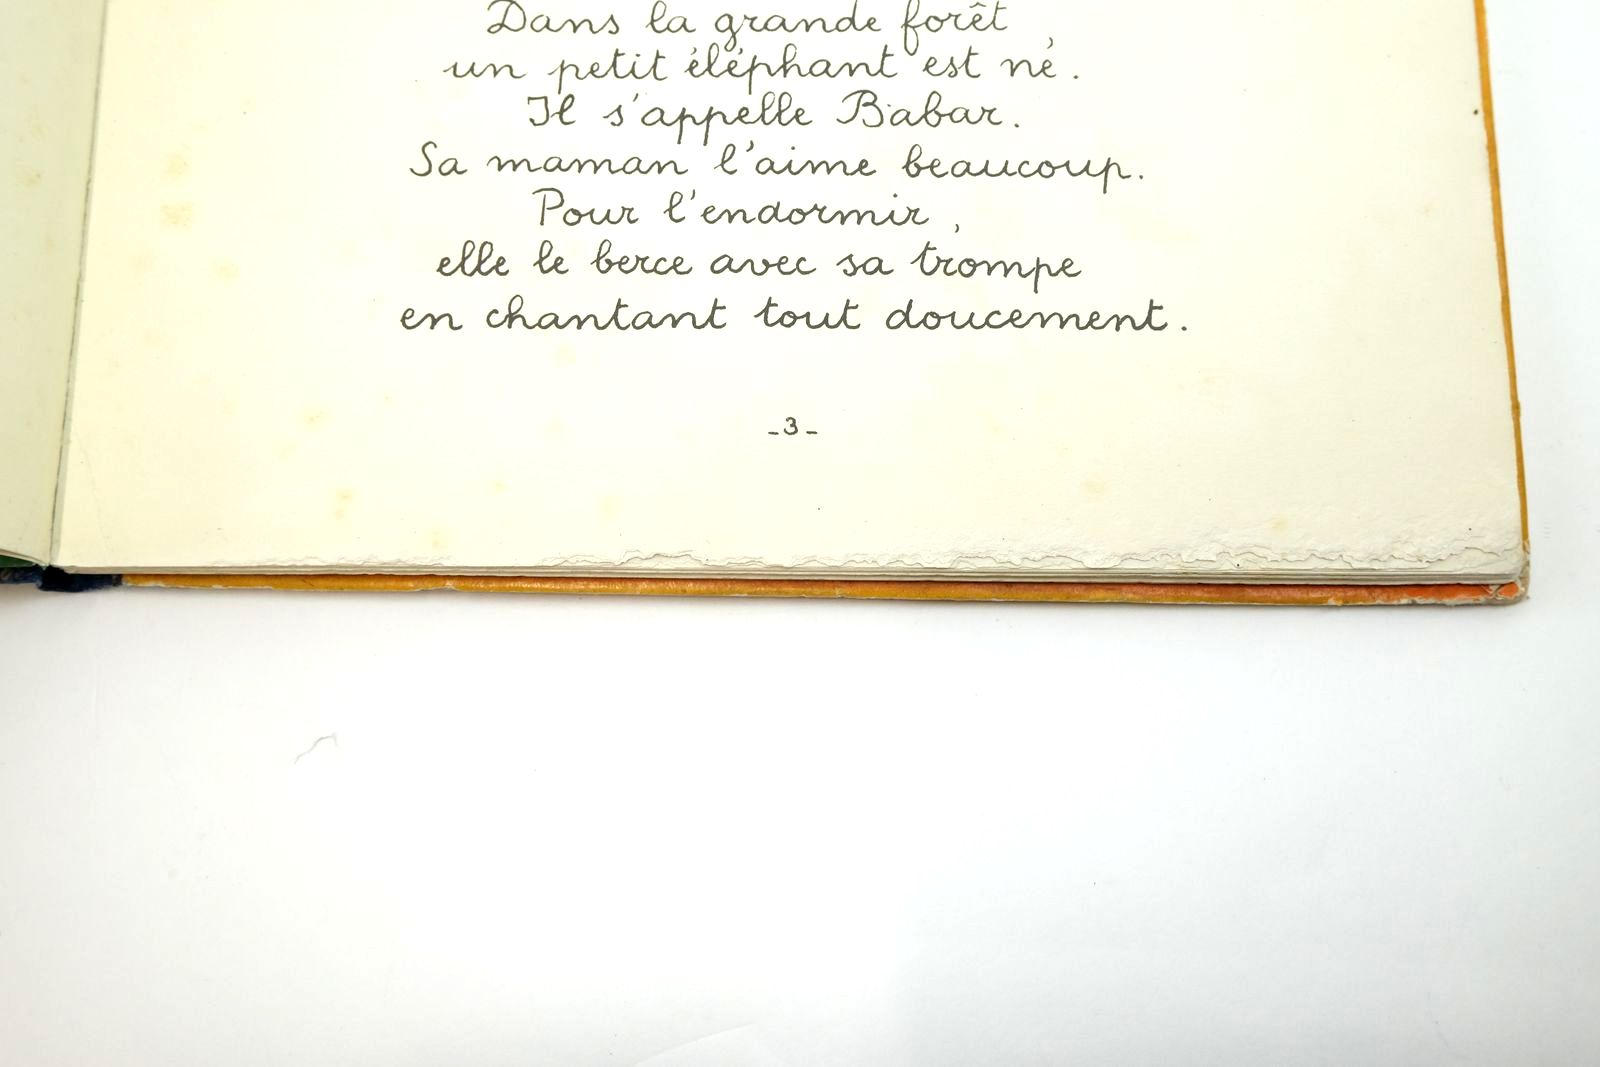 Dans la grande forêt,
un petit éléphant est né.
Il s'appelle Babar.
Sa maman l'aime beaucoup.
Pour l'endormir,
elle le berce avec sa trompe
en chantant tout doucement.
_3_